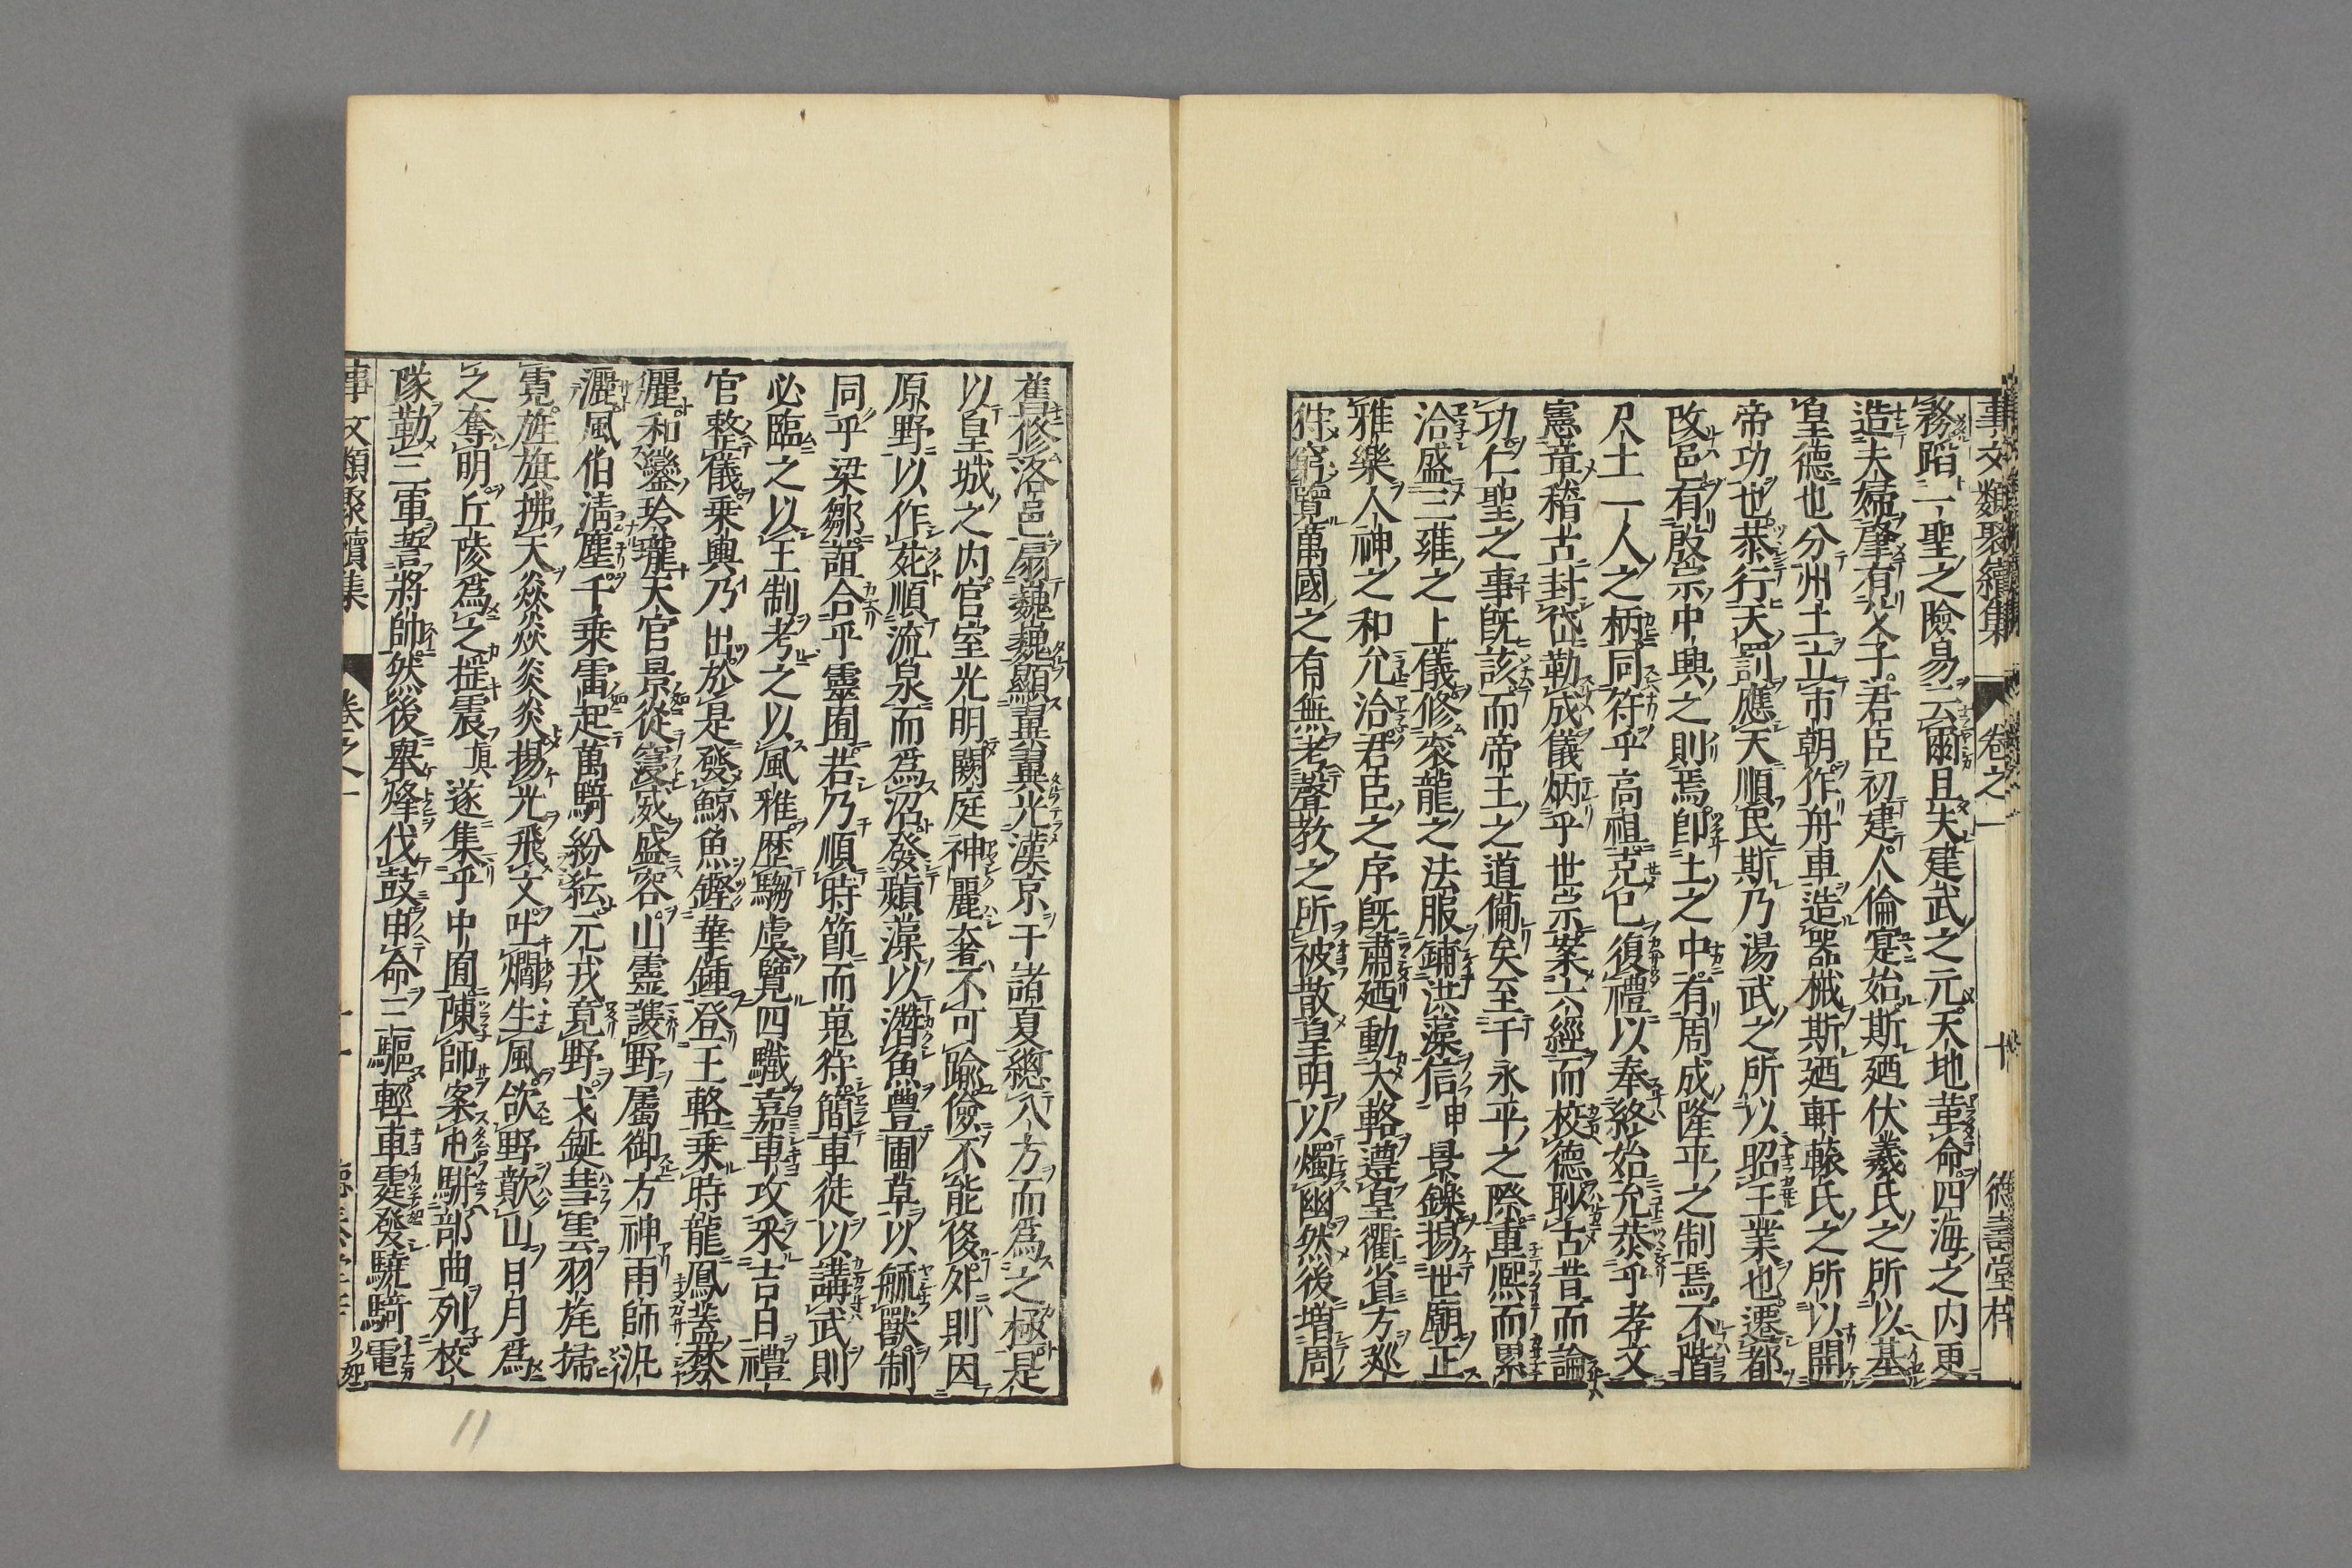 事文類聚續集 卷之一 十 德壽堂梓
務蹈一聖之險易云爾且夫建武之元天地革命四海之内更
造夫婦肇有父子君臣初建人倫寔始斯廼伏羲氏之所以基
皇德也分州土立市朝作舟車造器械斯廼軒轅氏之所以開
帝功也恭行天罰應天順民斯乃湯武之所以昭王業也遷都
改邑有殷宗中興之則焉卽土之中有周成隆平之制焉不階
尺土一人之柄同符乎高祖克已復禮以奉終始允恭乎孝文
憲章稽古封岱勒成儀炳乎世宗案六經而校德耿古昔而論
功仁聖之事旣該而帝王之道備矣至于永平之際重熈而累
洽盛三雍之上儀修衮龍之法服鋪洪藻信申景鑠揚世廟正
雅樂人神之和允洽君臣之序旣肅廼動大輅遵皇衢省方巡
狩窮覽萬國之有無考聲教之所被散皇明以燭幽然後増周
舊修洛邑扇巍巍顯翼翼光漢京于諸夏總八方而爲之極是
以皇城之内官室光明闕庭神麗奢不可踰儉不能後外則因
原野以作苑順流泉而爲沼發蘋藻以潛魚豊圃草以毓獸制
同乎梁鄒誼合乎靈囿若乃順時節而蒐狩簡車徒以講武則
必臨之以王制考之以風雅歴騶虞覽四驖嘉車攻采吉日禮
官整儀乗輿乃出於是發鯨魚鏗華鍾登王輅乗時龍鳳蓋棽
麗和鑾玲瓏天官景從寑威盛容山靈護野屬御方神雨師汎
灑風伯清塵千乗雷起萬騎紛紜元戎竟野戈鋋彗雲羽旄掃
霓旌旗拂天焱焱炎炎揚光飛文吐爓生風欱野歕山日月爲
之奪明丘陵爲之摇震塡遂集乎中囿陳師案屯駢部曲列校
隊勒三軍誓將帥然後舉烽伐鼓申命三驅輕車霆發驍騎電
事文類聚續集 卷之一 十一
11